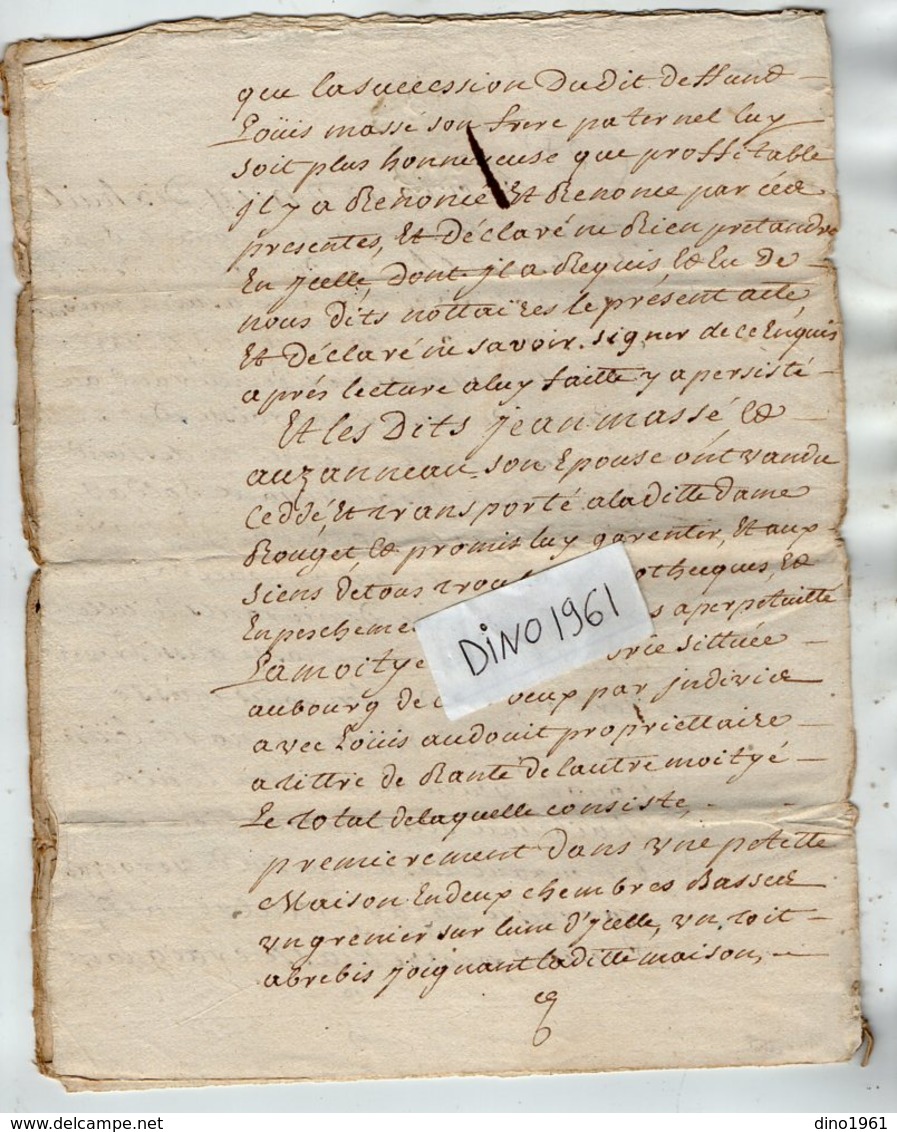 que la succession Du dit deffund
Loüis massé son frere paternel luy
soit plus honnereuse que proffitable
jl y a Renoncé Et Renonce par cés
presentes, Et Déclaré ne Rien pretandre
En jcelle, dont jl a Requis, Et Eu De
nous Dits nottaïres le présent acte,
Et Déclaré ne savoir signer de ce Enquis
aprés lecture a luy faitte y a persisté
Et les Dits jean massé, Et
auzanneau son Epouse ont vandu
Ceddé, Et transporté a la ditte Dame
Rouget, Et promis luy garentir, Et aux
siens de tous othecques, Et
a perpetuitté
La moityé sittuée
au bourg de par jndivice
avec Loüis audouit propriettaire
a tittre de Rante de l'autre moityé
Le total de laquelle consiste,
premierement dans vne petitte
Maison En deux chembres Basses
vn grenier sur l'une d'jcelle, vn toit
a brebis joignant la ditte maison,
DINO 1961
dino1961